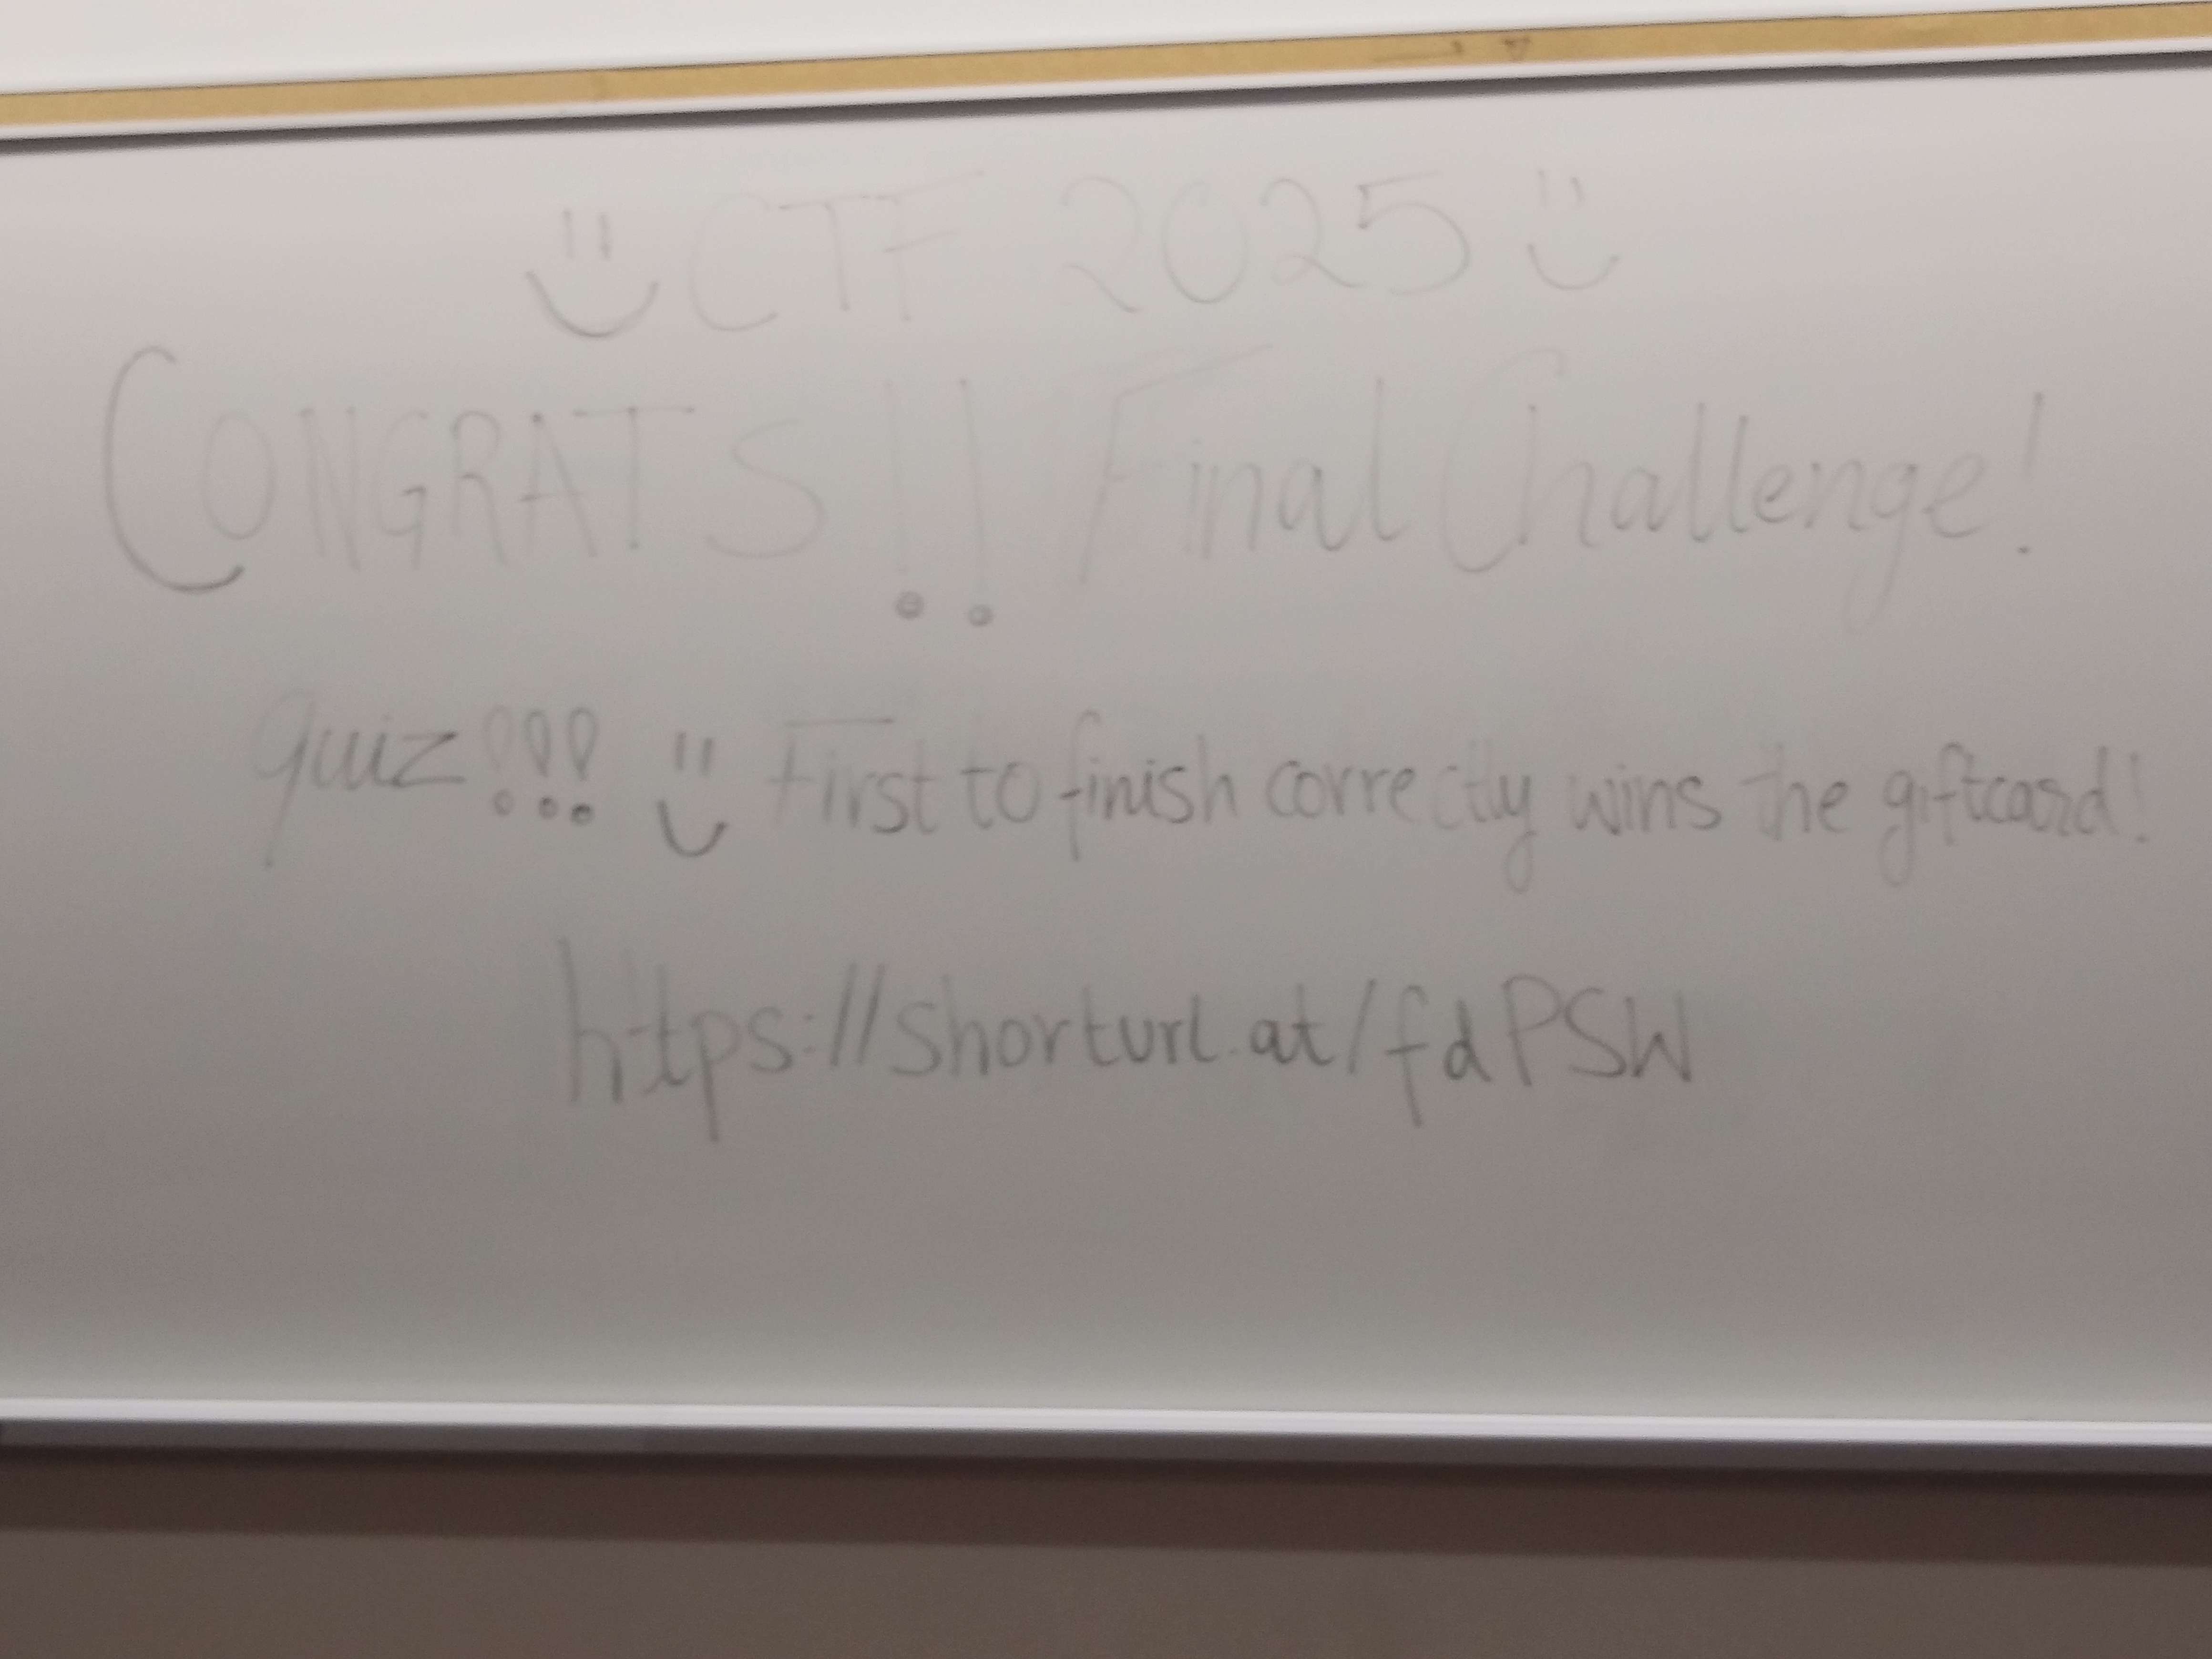 CTF 2025
CONGRATS!! Final Challenge!
quiz!!! First to finish correctly wins the giftcard!
https://shorturl.at/fdPSW